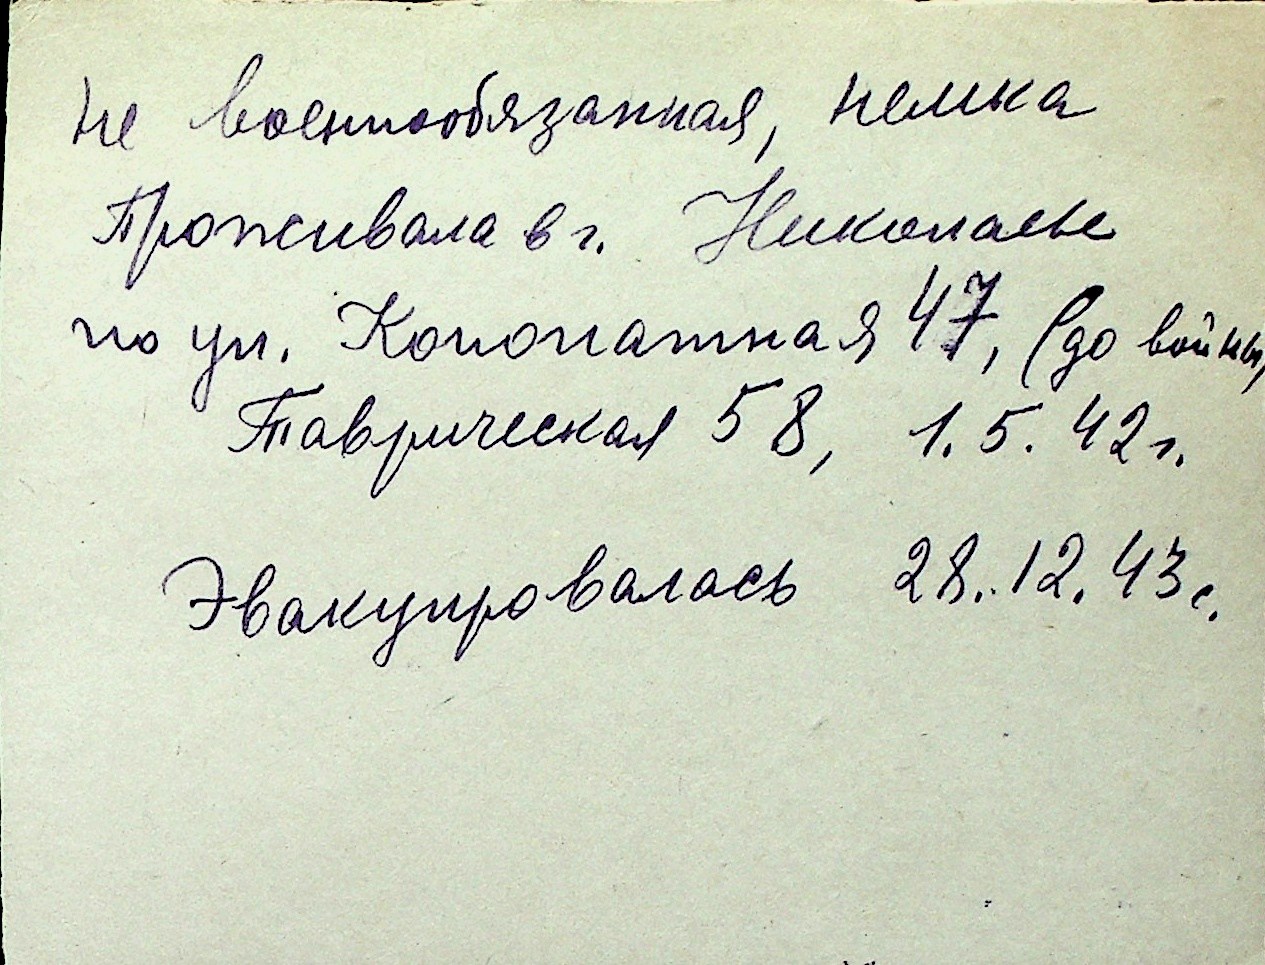 не военнообязанная, немка
Проживала в г. Николаеве
по ул. Колопатная 47, (до войны,
Таврическая 58, 1.5.42 г.
Эвакуировалась 28.12.43 г.